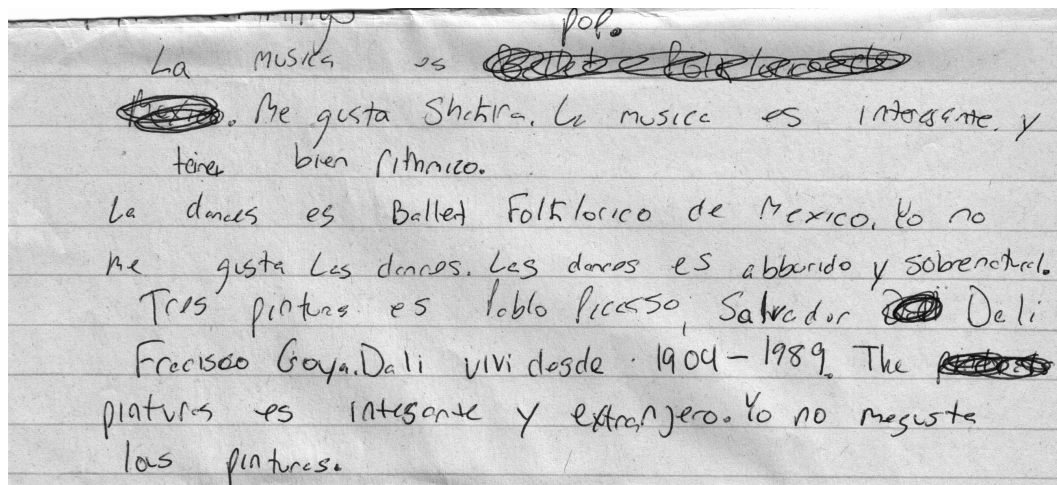 pop.
La musica es
Me gusta Shakira. La musica es interesante y
teiner bien rithmico.
La dances es Ballet Folklorico de Mexico. Yo no
me gusta Las dances. Las dances es abburido y sobrenatural.
Tres pinturs es Pablo Picasso, Salvador Dali
Fracisco Goya. Dali vivi desde 1904-1989. The
pinturs es intesante y extranjero. Yo no megusta
las pinturas.